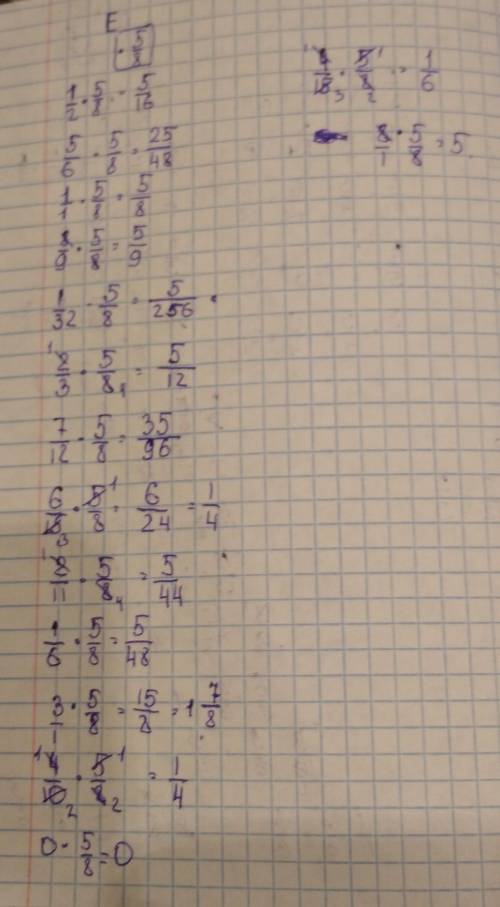 E
· 5/8
1/2 · 5/8 = 5/16
5/6 · 5/8 = 25/48
1/1 · 5/8 = 5/8
8/9 · 5/8 = 5/9
1/32 · 5/8 = 5/256
2/3 · 5/8 = 5/12
7/12 · 5/8 = 35/96
6/15 · 5/8 = 6/24 = 1/4
2/11 · 5/8 = 5/44
1/6 · 5/8 = 5/48
3/1 · 5/8 = 15/8 = 1 7/8
4/10 · 5/8 = 1/4
0 · 5/8 = 0
4/15 · 5/8 = 1/6
8/1 · 5/8 = 5